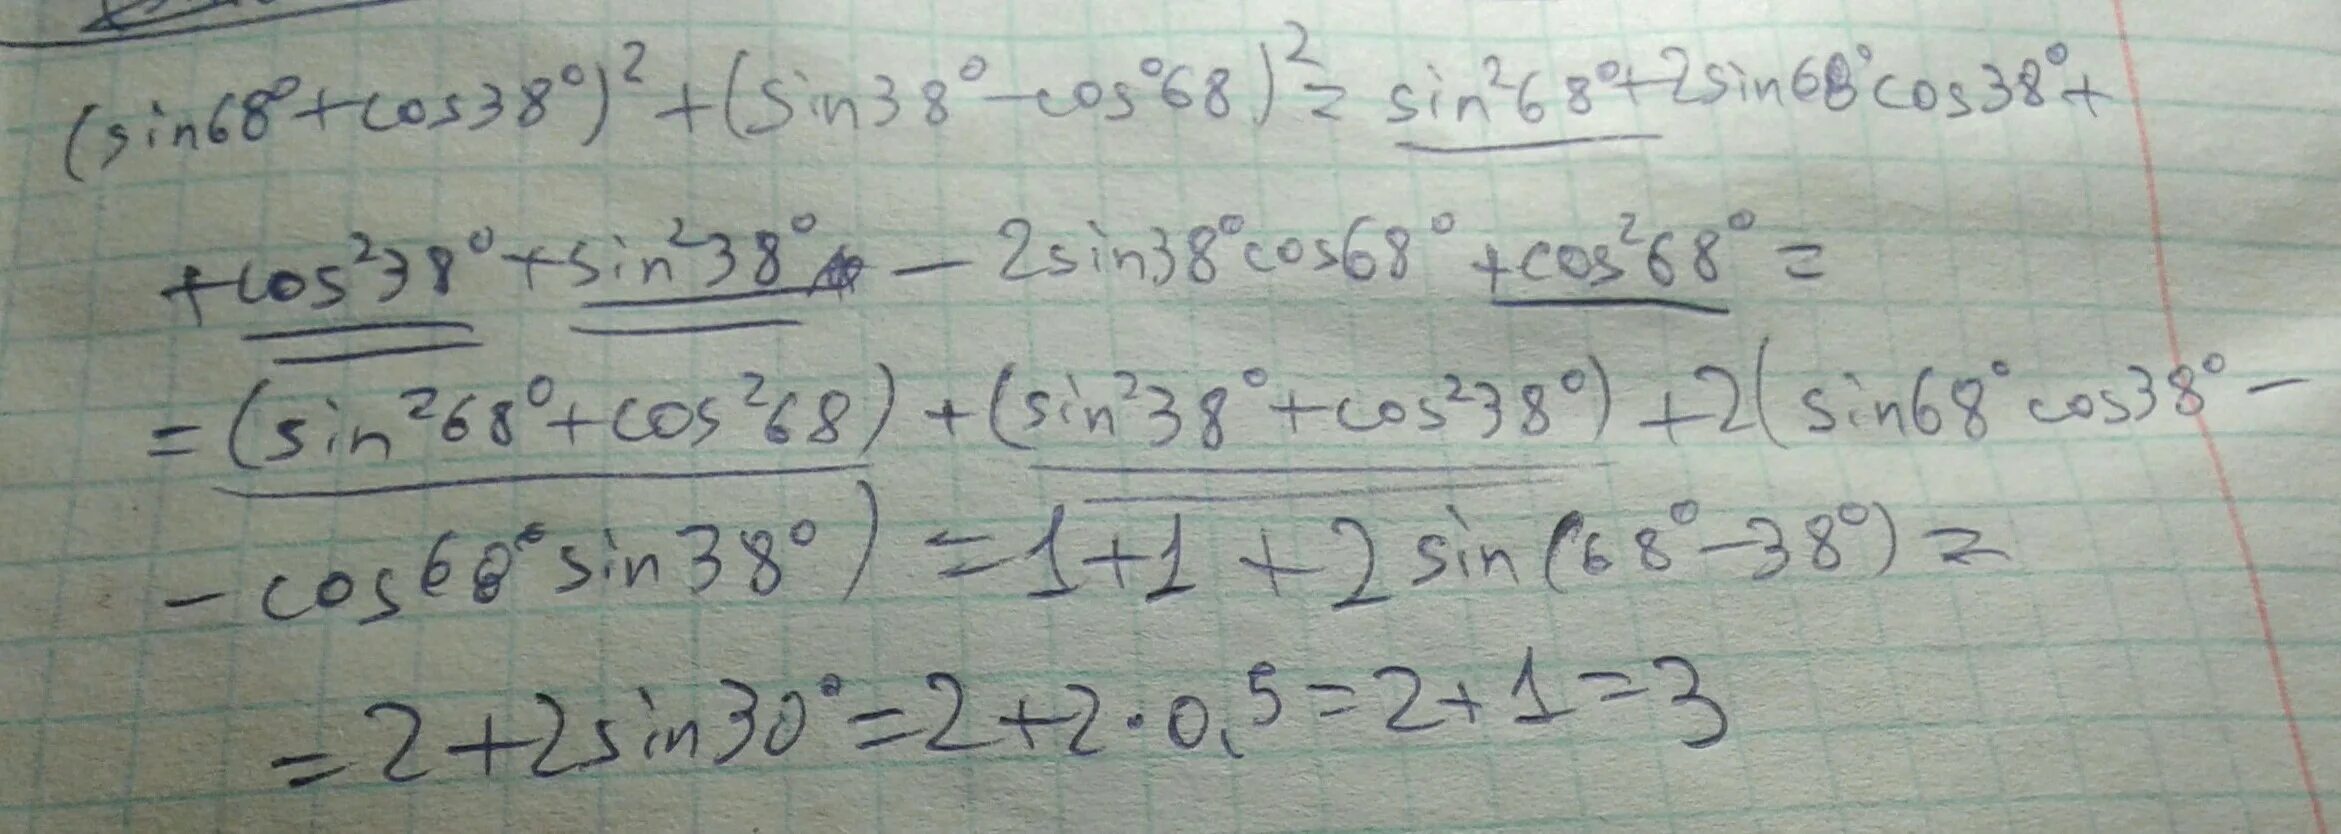 (sin68°+cos38°)²+(sin38°-cos°68)²=sin²68°+2sin68°cos38°+
+cos²38°+sin²38°-2sin38°cos68°+cos²68°=
=(sin²68°+cos²68)+(sin²38°+cos²38°)+2(sin68°cos38°-
-cos68°sin38°)=1+1+2sin(68°-38°)=
=2+2sin30°=2+2·0,5=2+1=3